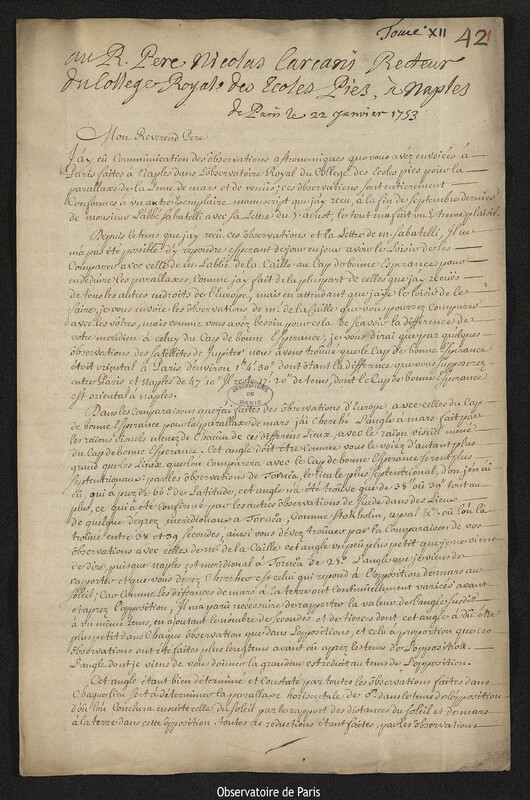 Tome XII 42
au R. Pere Nicolas Carcani Recteur
du College Royale des Ecoles Pies, à Naples
de Paris le 22 Janvier 1753
Mon Reverend Pere
J'ay eû Communication des observations astronomiques que vous avez envoiées à
Paris faites à Naples dans l'observatoire Royal du College des Ecoles pies pour la
parallaxe de la Lune de mars et de venus; ces observations sont entierement
Conformes a un autre Exemplaire manuscript que j'ay reçu, à la fin de septembre dernier
de monsieur L'abbé Sabatelli avec sa Lettre du aoust, le tout m'a fait un Extreme plaisir.
Depuis le tems que j'ay reçu ces observations et la Lettre de m. Sabatelli, Il ne
m'a pas été possible d'y repondre esperant de jour en jour avoir le Loisir de les
Comparer avec celles de m. L'abbé de la Caille au Cap de bonne Esperance pour
en deduire les parallaxes, Comme j'ay fait de la pluspart de celles que j'ay reçües
de tous les autres endroits de l'Europe, mais en attendant que j'aye le loisir de le
faire, je vous envoie les observations de m. de la Caille que vous pourrez comparer
avec les vôtres, mais comme vous avez besoin pour cela de sçavoir la difference de
votre meridien à celuy du Cap de bonne Esperance, je vous dirai que par quelques
observations des satellites de Jupiter nous avons trouvé que le Cap de bonne Esperance
étoit oriental à Paris d'environ 1h 4' 30" dont ôtant la difference que vous supposerez
entre Paris et Naples de 47' 10" Il reste 17' 20" de tems dont le Cap de bonne Esperance
est oriental à naples.
Dans les comparaisons que j'ai faites des observations d'Europe avec celles du Cap
de bonne Esperance pour la parallaxe de mars j'ai cherché L'angle à mars fait par
les raïons visuels menez de Chacun de ces differens Lieux, avec le raïon visuel mené
du Cap de bonne Esperance. Cet angle doit être comme vous le voiez d'autant plus
grand que les Lieux que l'on Comparera avec le Cap de bonne Esperance seront plus
septentrionaux: par les observations de Torneå, le lieu le plus septentrional, d'on j'en ai
eû, qui a prez de 66° de Latitude, cet angle n'a été trouvé que de 38" où 39" tout au
plus, ce qui a été Confirmé par les autres observations de suede dans des Lieux
de quelque degrez meridionaux à Torneå, Comme Stokholm, upsal &c. où l'on l'a
trouvé entre 38 et 39 secondes, ainsi vous devez trouver par la Comparaison de vos
observations avec celles de mr. de la Caille cet angle un peu plus petit que je ne viens
de dire, puisque naples est meridional à Torneå de 25°. L'angle que je viens de
rapporter et que vous devez Chercher est celui qui repond à L'opposition de mars au
soleil; Car comme les distances de mars à la terre ont Continuellement variées avant
et aprez l'opposition, Il m'a paru necessaire de rapporter la valeur de l'angle susdit
à un même tems, en ajoutant le nombre de secondes et de tierces dont cet angle a dû être
plus petit dans Chaque observation que dans L'opposition, et cela a proportion que ces
observations ont été faites plus longtems avant où aprez le tems de L'opposition.
L'angle dont je viens de vous donner la grandeur est reduit au tems de L'opposition.
Cet angle étant bien déterminé et constaté par toutes les observations faites dans
Chaque lieu sert à déterminer la parallaxe horisontale de ♂ dans le tems de l'opposition
d'où l'on Conclura ensuite celle du soleil par le rapport des distances du soleil et de mars
à la terre dans cette opposition. toutes ces reductions étant faites, par les observations
OBSERVATOIRE DE PARIS
Observatoire de Paris